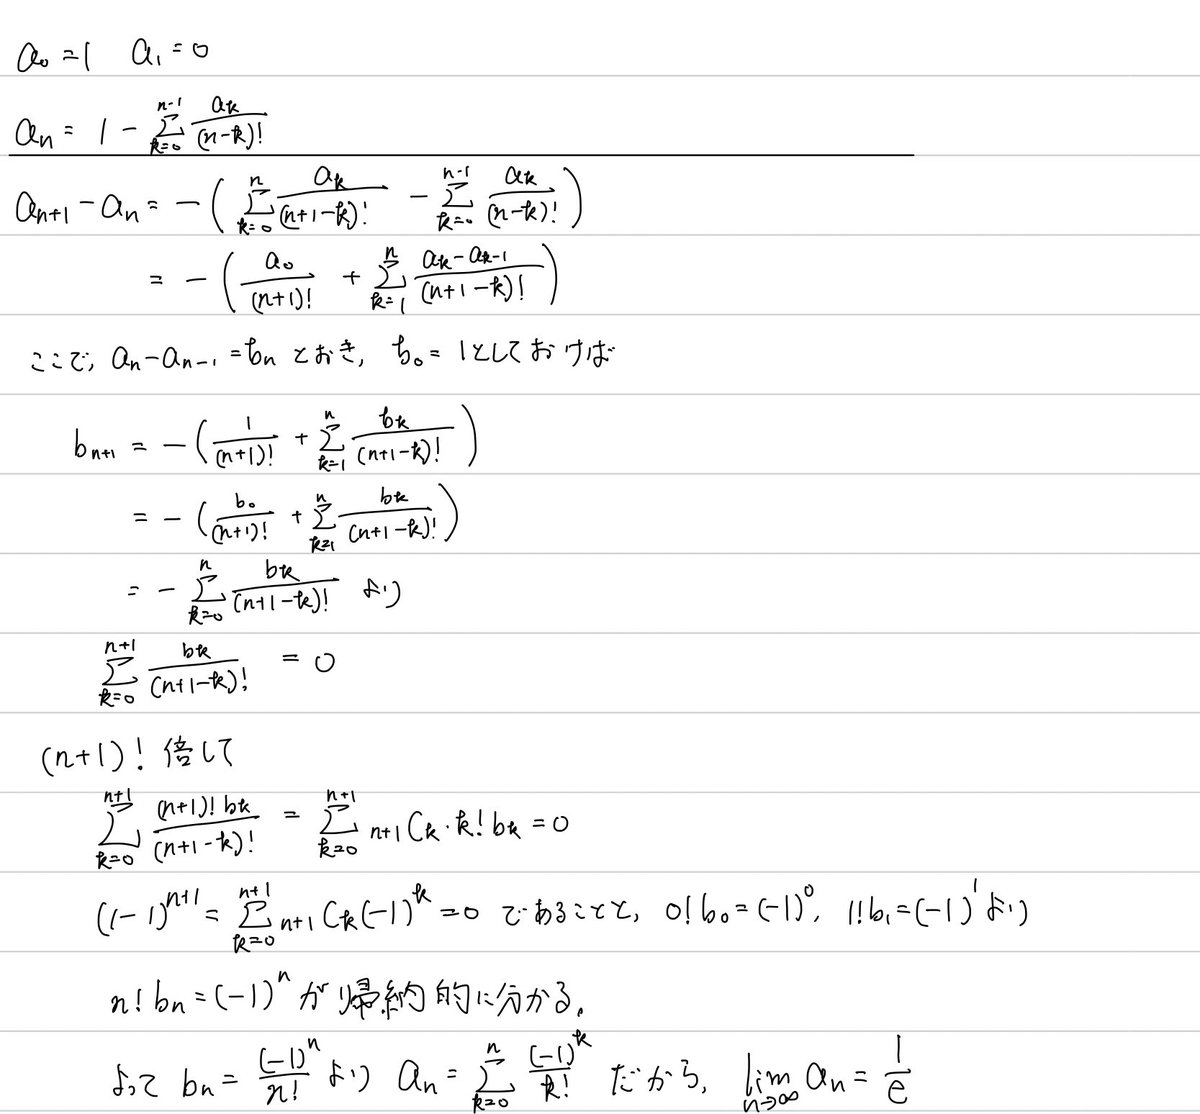 a₀ = 1　a₁ = 0
aₙ = 1 - Σ_{k=0}^{n-1} aₖ/(n-k)!
aₙ₊₁ - aₙ = -( Σ_{k=0}^{n} aₖ/(n+1-k)! - Σ_{k=0}^{n-1} aₖ/(n-k)! )
= -( a₀/(n+1)! + Σ_{k=1}^{n} (aₖ-aₖ₋₁)/(n+1-k)! )
ここで, aₙ-aₙ₋₁ = bₙ とおき, b₀ = 1としておけば
bₙ₊₁ = -( 1/(n+1)! + Σ_{k=1}^{n} bₖ/(n+1-k)! )
= -( b₀/(n+1)! + Σ_{k=1}^{n} bₖ/(n+1-k)! )
= - Σ_{k=0}^{n} bₖ/(n+1-k)! より
Σ_{k=0}^{n+1} bₖ/(n+1-k)! = 0
(n+1)! 倍して
Σ_{k=0}^{n+1} (n+1)! bₖ/(n+1-k)! = Σ_{k=0}^{n+1} ₙ₊₁Cₖ・k! bₖ = 0
(1-1)^{n+1} = Σ_{k=0}^{n+1} ₙ₊₁Cₖ(-1)^k = 0 であることと, 0!b₀ = (-1)^0, 1!b₁ = (-1)^1 より
n! bₙ = (-1)^n が帰納的に分かる.
よって bₙ = (-1)^n/n! より aₙ = Σ_{k=0}^{n} (-1)^k/k! だから, lim_{n→∞} aₙ = 1/e